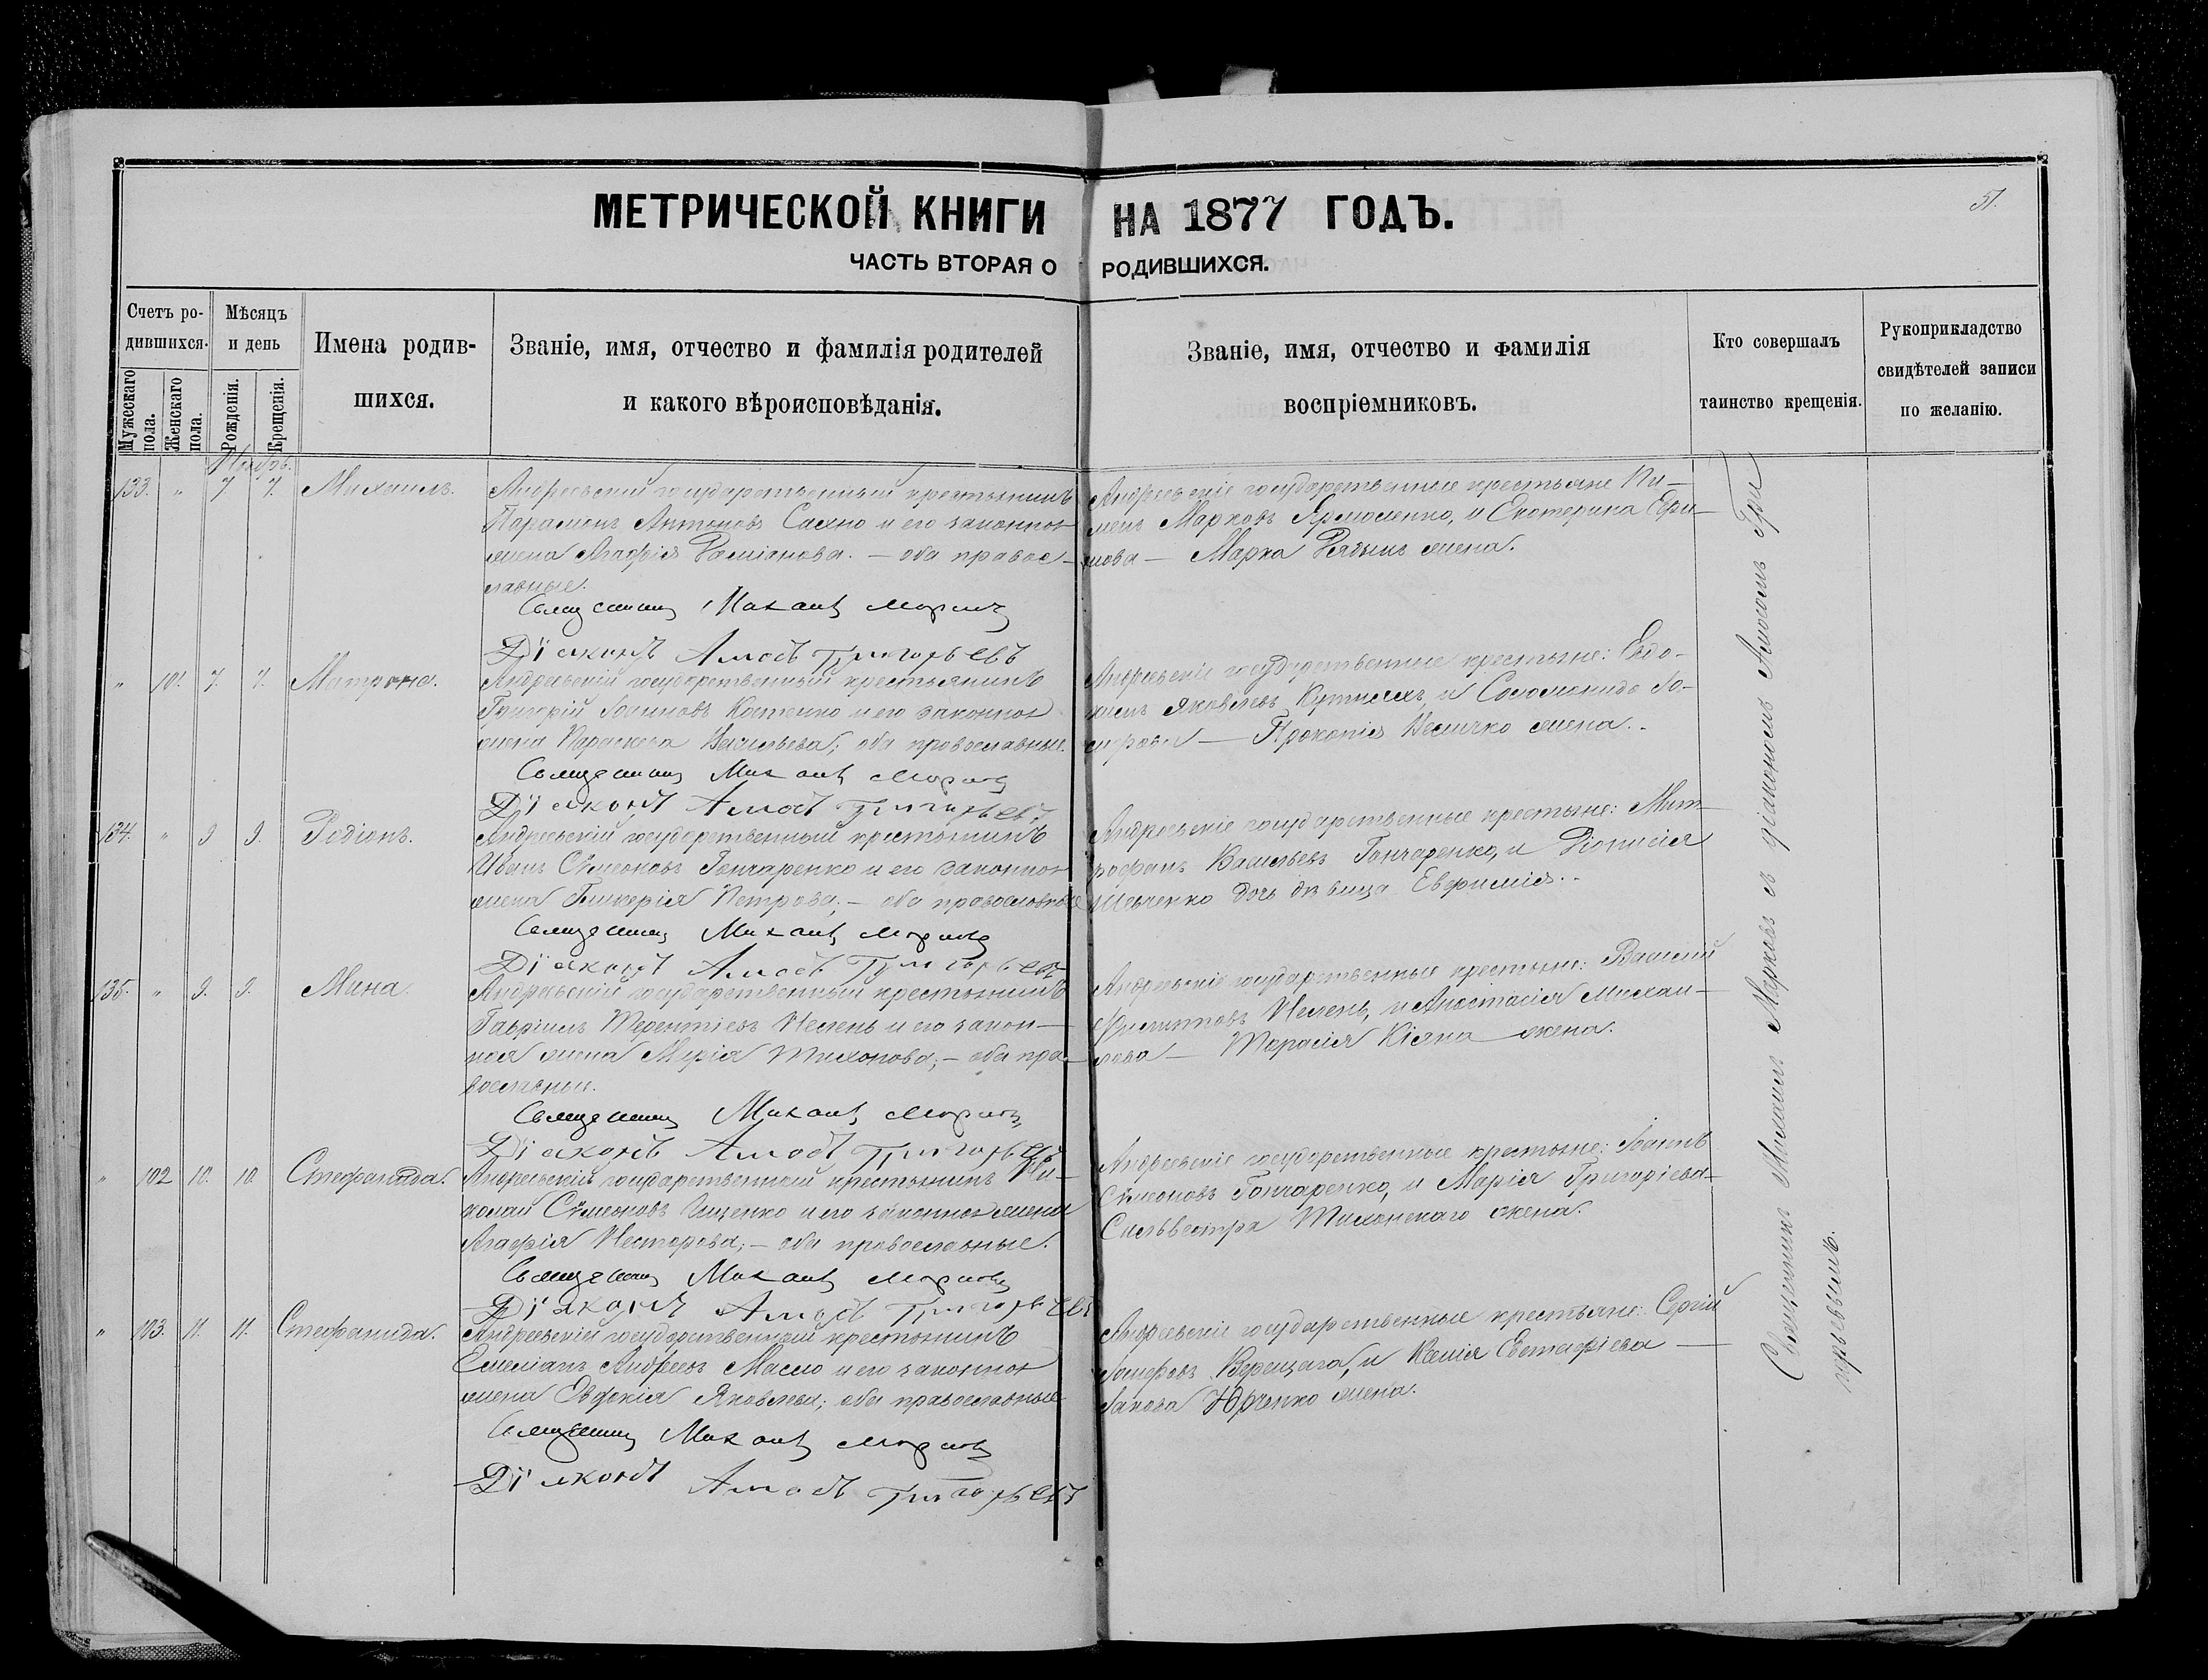 МЕТРИЧЕСКОЙ КНИГИ НА 1877 ГОДЪ.
51.
ЧАСТЬ ВТОРАЯ О РОДИВШИХСЯ.
Счетъ родившихся.
Мужескаго пола.
Женскаго пола.
Мѣсяцъ и день
Рожденія.
Крещенія.
Имена родив-
шихся.
Званіе, имя, отчество и фамилія родителей
и какого вѣроисповѣданія.
Званіе, имя, отчество и фамилія
воспріемниковъ.
Кто совершалъ
таинство крещенія.
Рукоприкладство
свидѣтелей записи
по желанію.
Ноябрь.
133. " 7 7. Михаилъ.
Андреевскій государственный крестьянинъ
Парамонъ Антоновъ Сахно и его законная
жена Агафія Даміанова. — оба правос-
лавные.
Священникъ Михаилъ
Діаконъ Амосъ Григорьевъ
Андреевскіе государственные крестьяне Пи-
менъ Марковъ Ярмошенко, и Екатерина Ефи-
мова — Марка жена.
" 101. 7. 7. Матрона.
Андреевскій государственный крестьянинъ
Григорій Іоанновъ Катенко и его законная
жена Параскева Васильева; оба православные.
Священникъ Михаилъ
Діаконъ Амосъ Григорьевъ
Андреевскіе государственные крестьяне: Евдо-
кимъ Яковлевъ и Соломонида
— Прокопія жена.
134. " 9 9. Родіонъ.
Андреевскій государственный крестьянинъ
Иванъ Сѵмеоновъ Гончаренко и его законная
жена Гликерія Петрова; — оба православные
Священникъ Михаилъ
Діаконъ Амосъ Григорьевъ
Андреевскіе государственные крестьяне: Мит-
рофанъ Васильевъ Гончаренко, и Діонисія
дочь дѣвица Евфимія.
135. " 9. 9. Мина.
Андреевскій государственный крестьянинъ
Гавріилъ Терентіевъ Нелень и его закон-
ная жена Марія Тихонова; — оба пра-
вославные.
Священникъ Михаилъ
Діаконъ Амосъ Григорьевъ
Андреевскіе государственные крестьяне: Василій
Филипповъ Нелень, и Анастасія Михаи-
лова — Тарасія Кіяна жена.
" 102 10. 10. Стефанида.
Андреевскій государственный крестьянинъ Ни-
колай Сѵмеоновъ Ищенко и его законная жена
Агафія Несторова; — оба православные.
Священникъ Михаилъ
Діаконъ Амосъ Григорьевъ
Андреевскіе государственные крестьяне: Іоаннъ
Сѵмеоновъ Гончаренко, и Марія Григоріева —
Сильвестра Тихонскаго жена.
" 103. 11. 11. Стефанида.
Андреевскій государственный крестьянинъ
Емеліанъ Андреевъ Масло и его законная
жена Евдокія Яковлева; оба православные
Священникъ Михаилъ
Діаконъ Амосъ Григорьевъ
Андреевскіе государственные крестьяне: Сергій
Іосифовъ Верещага, и Ксенія Евстафіева —
Іакова Юрченко жена.
Священникъ Михаилъ Марковъ съ діакономъ Амосомъ Гри
горьевымъ.